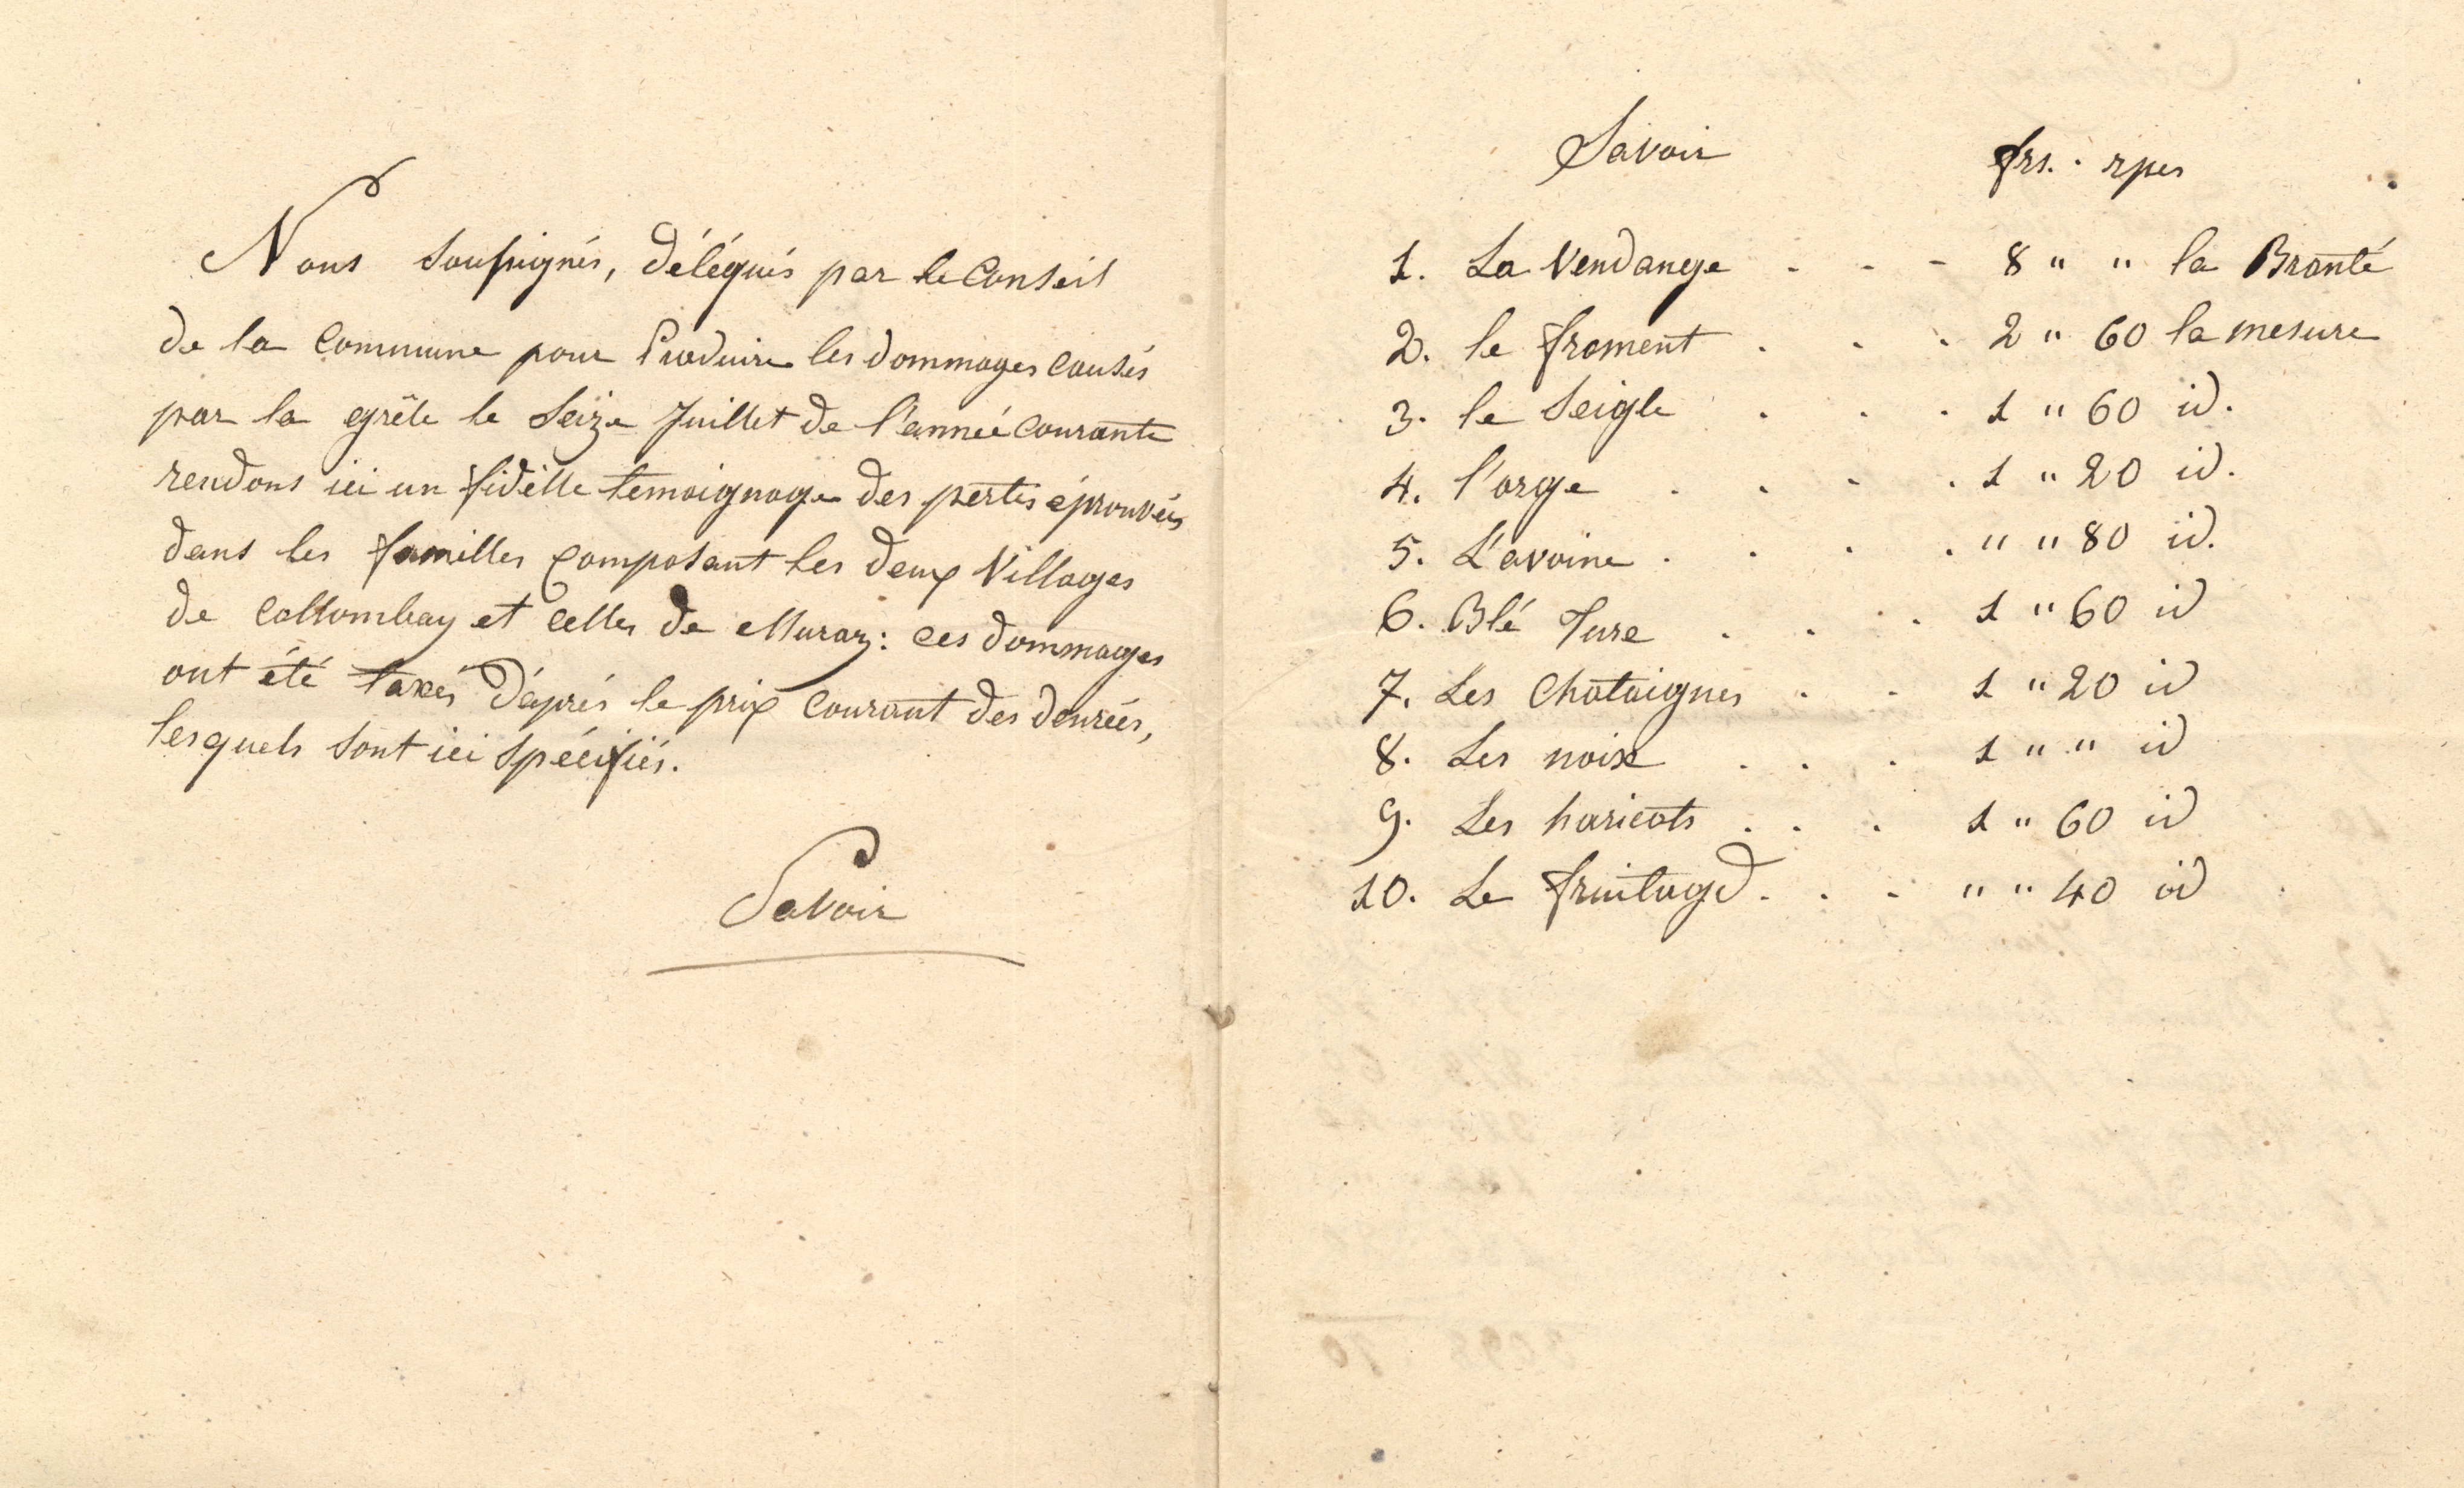 Nous soussignés, délégués par le Conseil
de la Commune pour Produire les dommages causés
par la grêle le Seize Juillet de l'année courante
rendons ici un fidélle temoignage des pertes éprouvées
dans les familles composant les deux Villages
de Collombay et celles de Muraz: ces dommages
ont été taxés d'aprés le prix courant des denrées,
lesquels sont ici spécifiés.
Savoir
Savoir frs. rpes
1. La Vendange - - - 8 " " la Branté
2. le froment . . . 2 " 60 la mesure
3. le Seigle . . . 1 " 60 id.
4. l'orge . . . . 1 " 20 id.
5. L'avoine . . . . " " 80 id.
6. Blé Turc . . . 1 " 60 id
7. Les Chataignes . . 1 " 20 id
8. Les noix . . . 1 " " id
9. Les haricots . . . 1 " 60 id
10. Le fruitage . . . " " 40 id